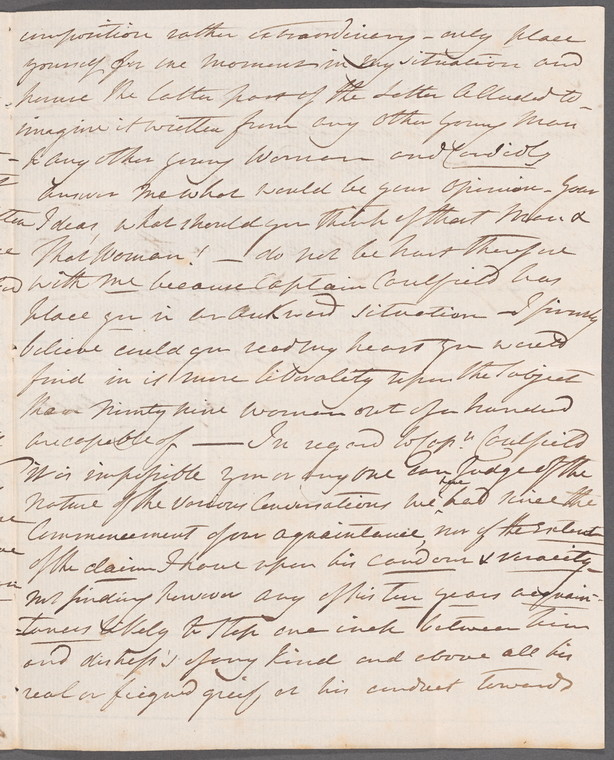 composition rather extraordinary – only place
yourself for one moment in my situation and
peruse the latter part of the Letter alluded to –
imagine it written from any other young Man
to any other young Woman and Candidly
answer me what would be your opinion – Your
Ideas, what should you think of that Man &
that Woman! — do not be hurt therefore
with me because Captain Caulfield has
place you in an aukward situation – I firmly
believe could you read my heart you would
find in it more liberality upon the Subject
than Ninty nine Women out of a hundred
are capable of — In regard to Capn. Caulfield
it is impossible you or any one can Judge of the
nature of the various Conversations we have had since the
Commencement of our aquaintance, nor of the Extent
of the claim I have upon his candour & veracity –
not finding however any of his ten years aquain-
tances likely to step one inch between him
and distress's of any kind and above all his
real or feigned grief, at his conduct towards